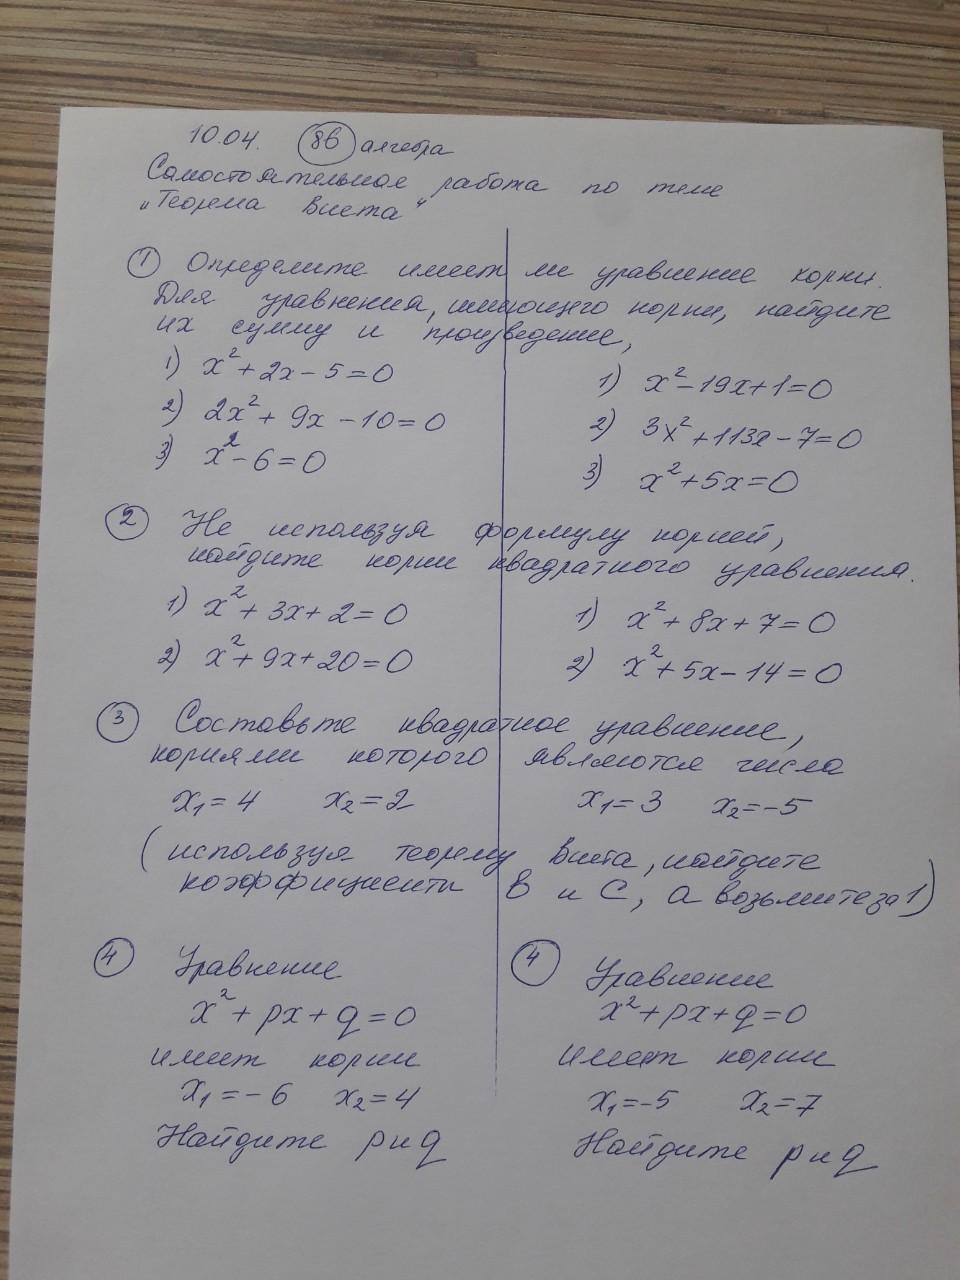 10.04. 8в алгебра
Самостоятельная работа по теме
„Теорема Виета"
1 Определите имеет ли уравнение корни.
Для уравнения, имеющего корни, найдите
их сумму и произведение,
1) x² + 2x - 5 = 0
2) 2x² + 9x - 10 = 0
3) x² - 6 = 0
1) x² - 19x + 1 = 0
2) 3x² + 113x - 7 = 0
3) x² + 5x = 0
2 Не используя формулу корней,
найдите корни квадратного уравнения.
1) x² + 3x + 2 = 0
2) x² + 9x + 20 = 0
1) x² + 8x + 7 = 0
2) x² + 5x - 14 = 0
3 Составьте квадратное уравнение,
корнями которого являются числа
x₁ = 4 x₂ = 2
x₁ = 3 x₂ = -5
(используя теорему Виета, найдите
коэффициенты в и с, а возьмите за 1)
4 Уравнение
x² + px + q = 0
имеет корни
x₁ = -6 x₂ = 4
Найдите p и q
4 Уравнение
x² + px + q = 0
имеет корни
x₁ = -5 x₂ = 7
Найдите p и q